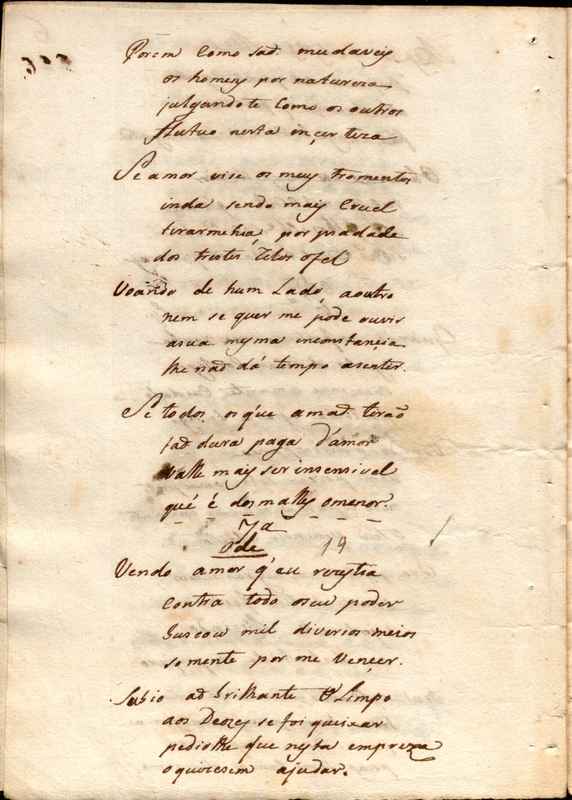 Porem como saõ mudaveis
os homens por natureza
julgando te como os outros
flutuo nesta inçerteza
Se amor vise os meus tromentos
inda sendo mais cruel
tirarmehia, por piadade
dos tristes zelos ofel
Voando de hum Lado, aoutro
nem se quer me pode ouvir
asua mesma inconstançia
lhe naõ dá tempo asenter.
Se todos os q'ue amaõ teraõ
taõ dura paga d'amor
valle mays ser insensivel
qué é dos malles omenor.
7a
Ode 14
Vendo amor q'eu rezestia
contra todo oseu poder
buscou mil diversos meios
somente por me Vençer.
Subio aõ brilhante Olimpo
aos Deozes se foi queixar
pediolhe que nesta empreza
oquizesem ajudar.